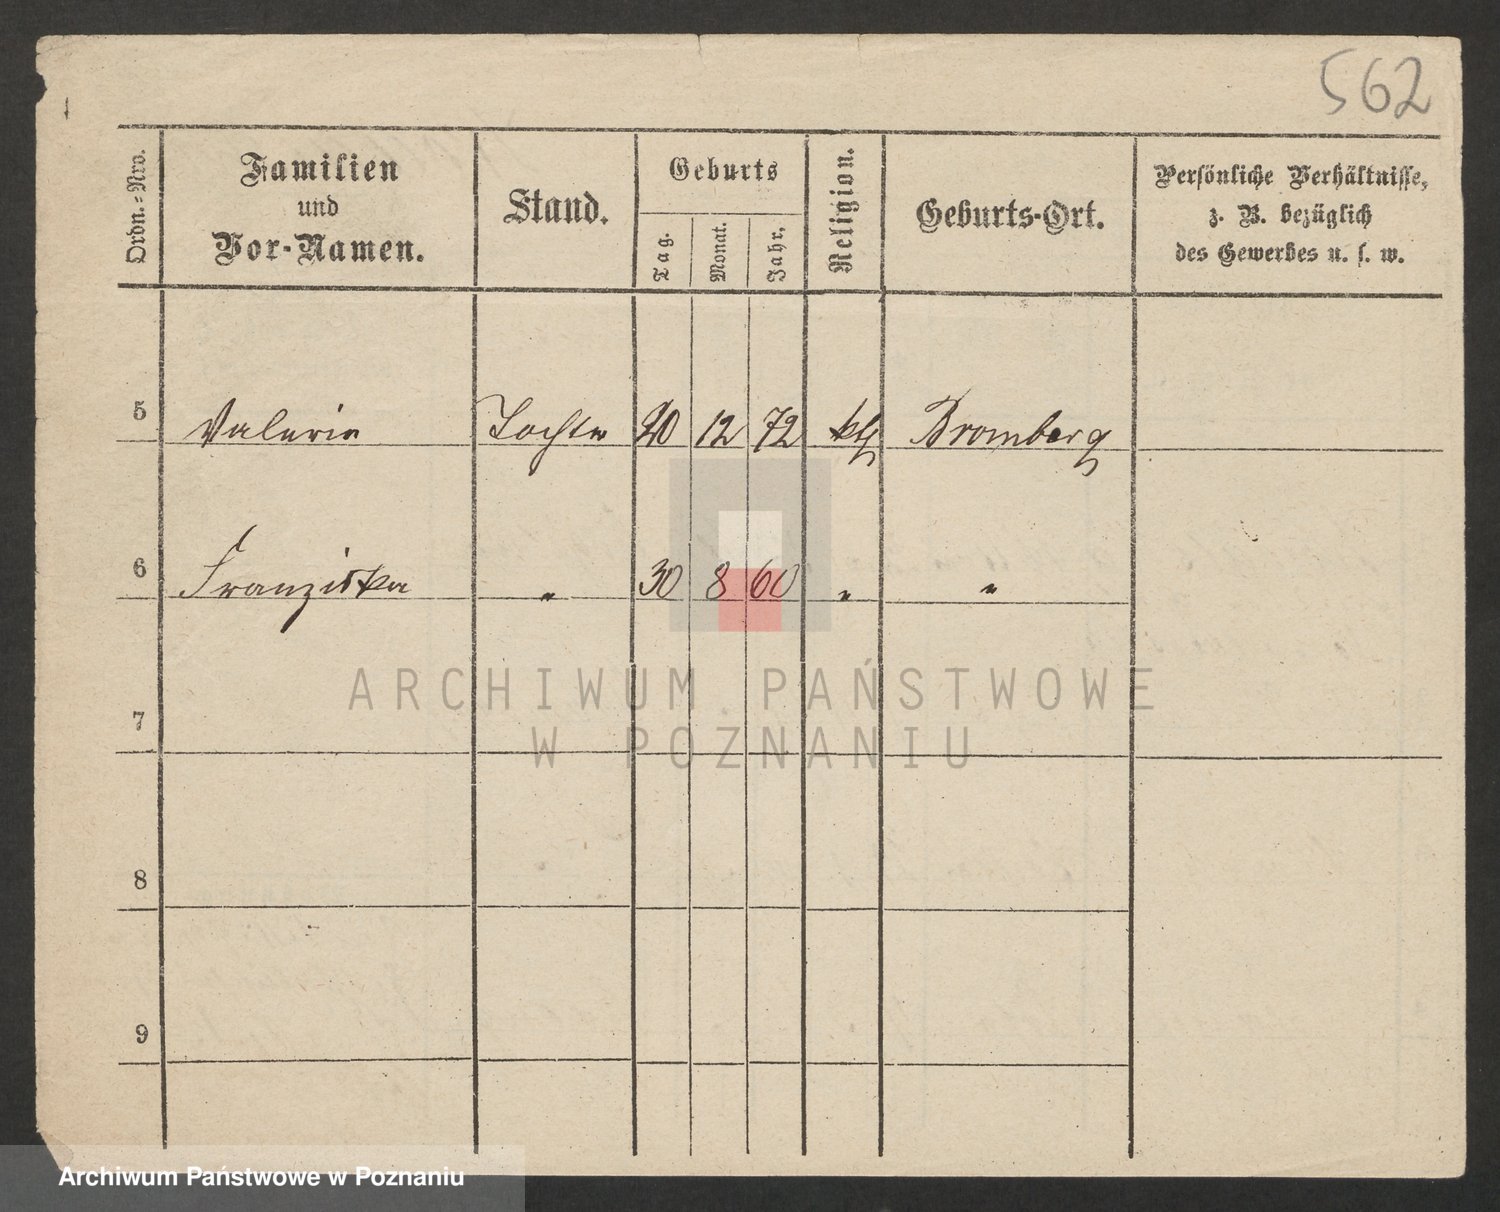 562
Ordn.-Nro.
Familien
und
Vor-Namen.
Stand.
Geburts
Tag.
Monat.
Jahr.
Religion.
Geburts-Ort.
Persönliche Verhältnisse,
z. B. bezüglich
des Gewerbes u. s. w.
5 Valeria Tochter 20 12 72 kth Bromberg
6 Franziska " 30 8 60 " "
7
8
9
ARCHIWUM PAŃSTWOWE
W POZNANIU
Archiwum Państwowe w Poznaniu